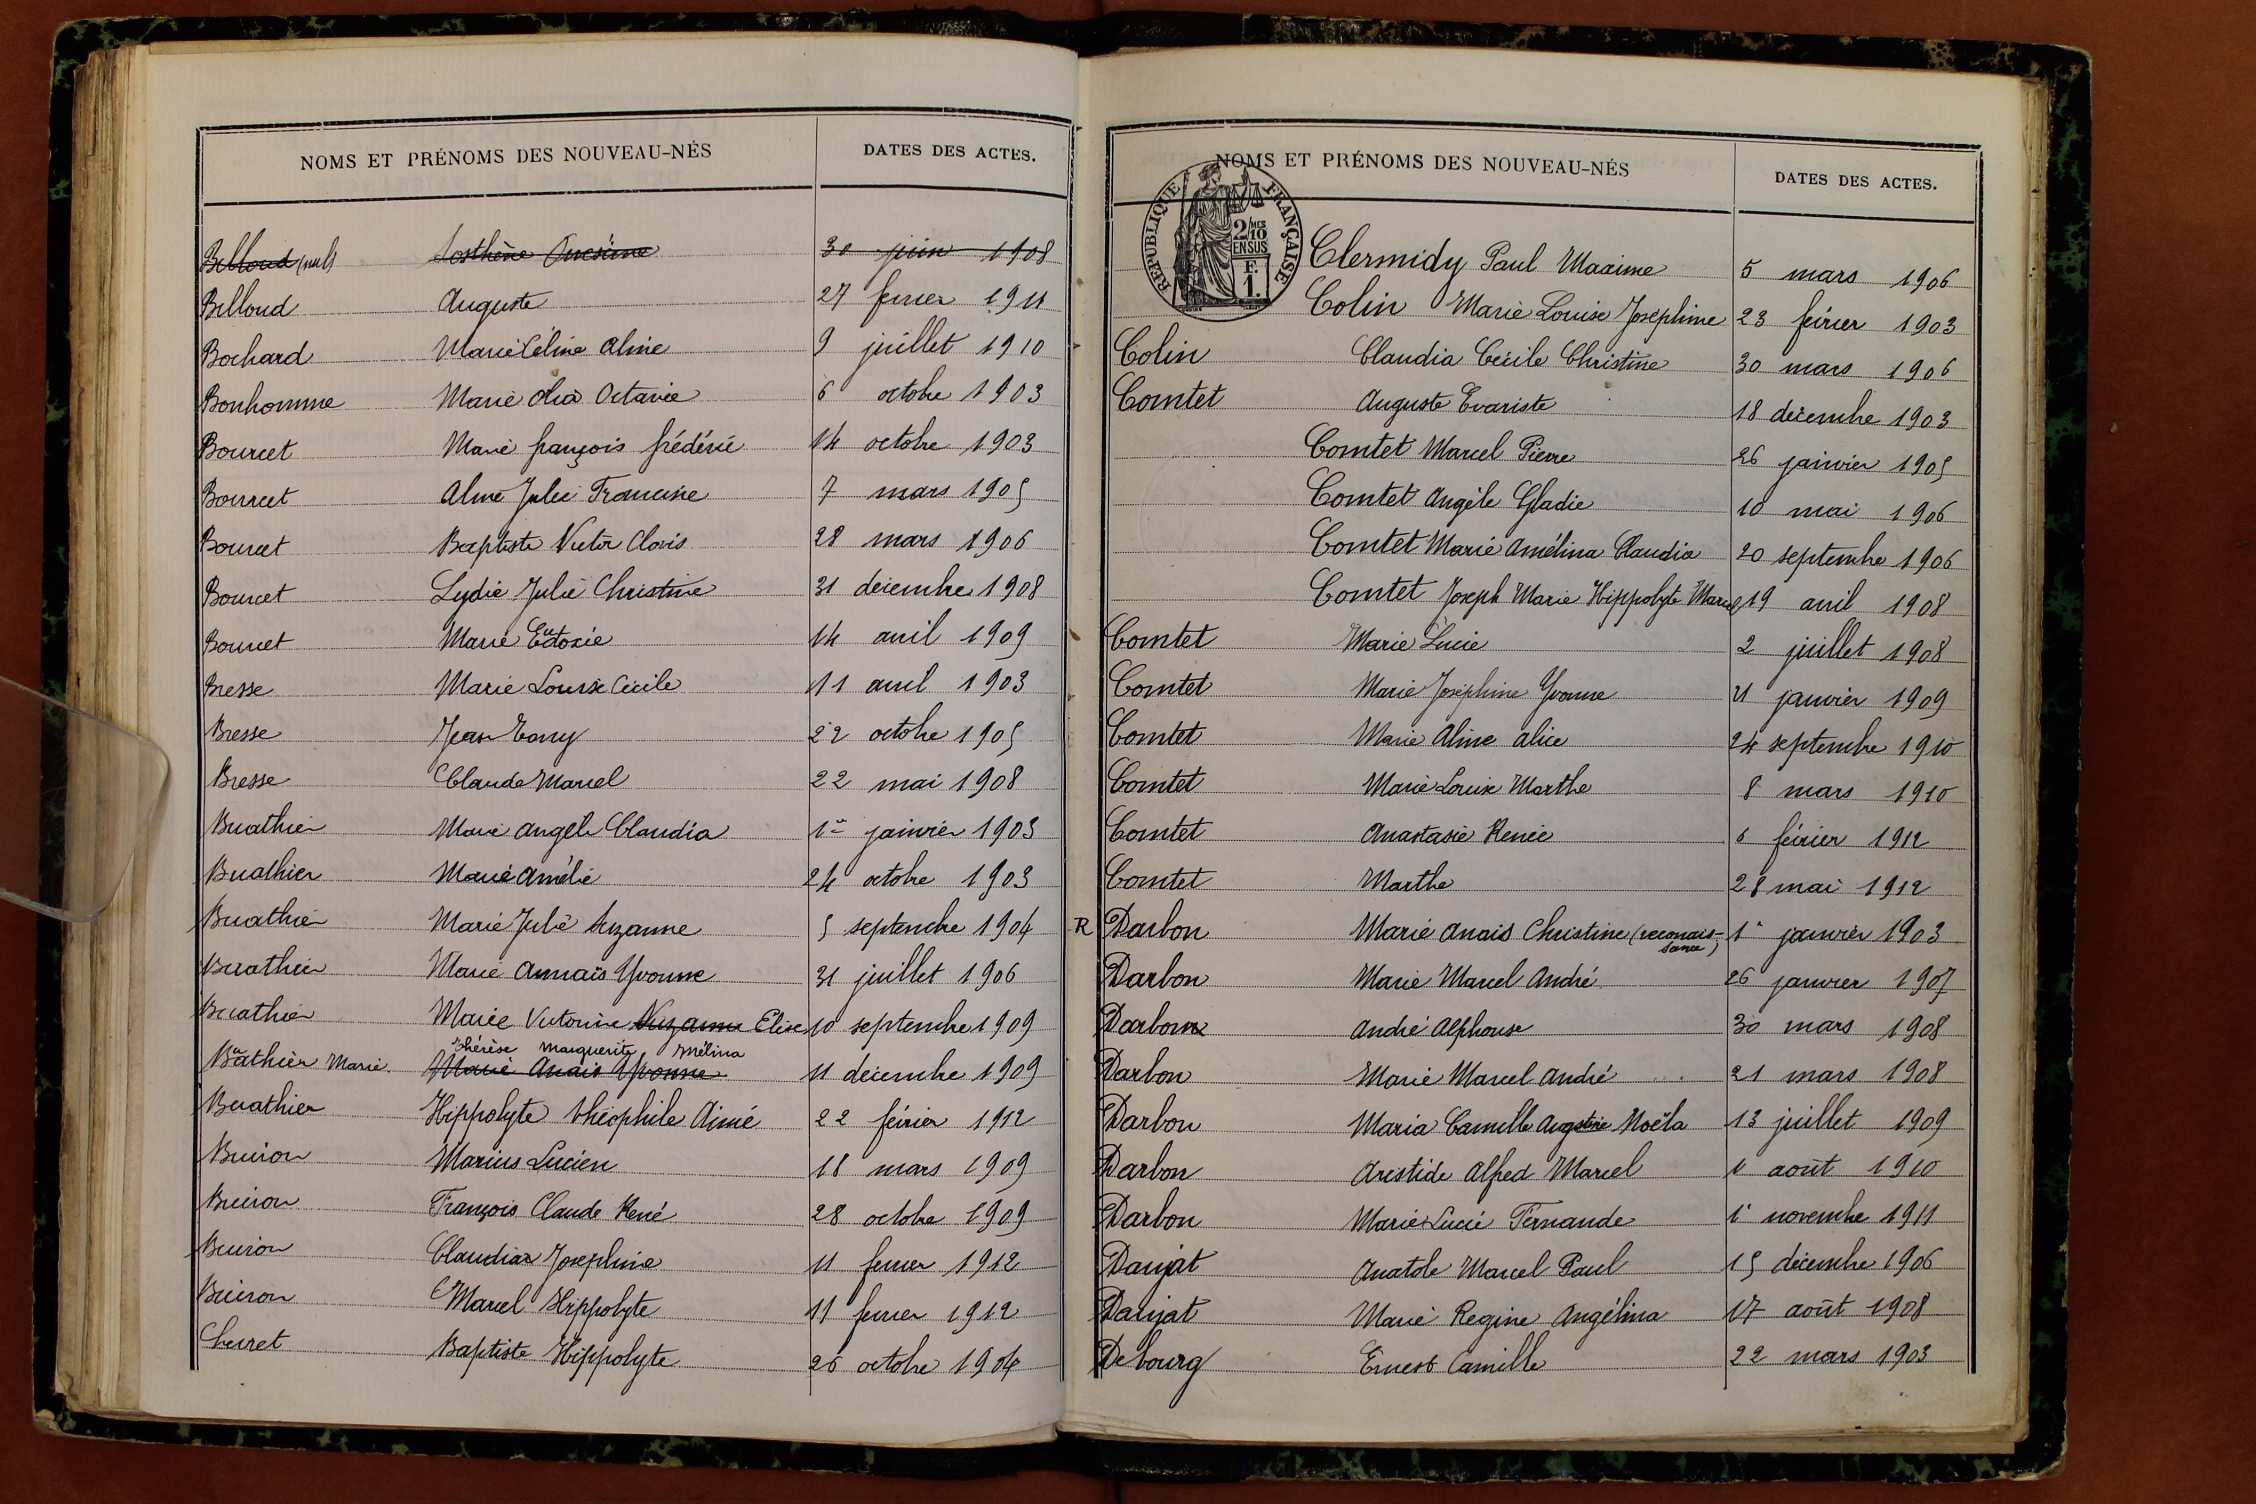 NOMS ET PRÉNOMS DES NOUVEAU-NÉS DATES DES ACTES.
Belloud (nul) Sosthène Onésime 30 juin 1908
Belloud Auguste 27 fevrier 1911
Bochard Marie Céline Aline 9 juillet 1910
Bonhomme Marie Olia Octavie 6 octobre 1903
Bourcet Marie françois frédéric 14 octobre 1903
Bourcet Aline Julie Francine 7 mars 1905
Bourcet Baptiste Victor Clovis 28 mars 1906
Bourcet Lydie Julie Christine 31 décembre 1908
Bourcet Marie Eudoxie 14 avril 1909
Bresse Marie Louise Cécile 11 avril 1903
Bresse Jean Tony 22 octobre 1905
Bresse Claude Marcel 22 mai 1908
Buathier Marie Angèle Claudia 1er janvier 1903
Buathier Marie Amélie 24 octobre 1903
Buathier Marie Julie Suzanne 5 septembre 1904
Buathier Marie Annaïs Yvonne 31 juillet 1906
Buathier Marie Victorine Suzanne Elise 10 septembre 1909
Thérèse Marguerite Mélina
Buathier Marie Marie Anaïs Yvonne 11 décembre 1909
Buathier Hippolyte théophile Aimé 22 février 1912
Buiron Marius Lucien 18 mars 1909
Buiron François Claude René 28 octobre 1909
Buiron Claudia Josephine 11 fevrier 1912
Buiron Marcel Hippolyte 11 fevrier 1912
Chevret Baptiste Hippolyte 26 octobre 1904
NOMS ET PRÉNOMS DES NOUVEAU-NÉS DATES DES ACTES.
RÉPUBLIQUE FRANÇAISE
2/10 MES
EN SUS
F.
1.
Clermidy Paul Maxime 5 mars 1906
Colin Marie Louise Josephine 23 février 1903
Colin Claudia Cécile Christine 30 mars 1906
Comtet Auguste Evariste 18 décembre 1903
Comtet Marcel Pierre 26 janvier 1905
Comtet Angèle Gladie 10 mai 1906
Comtet Marie Amélina Claudia 20 septembre 1906
Comtet Joseph Marie Hippolyte Marcel 19 avril 1908
Comtet Marie Lucie 2 juillet 1908
Comtet Marie Joséphine Yvonne 21 janvier 1909
Comtet Marie Aline Alice 24 septembre 1910
Comtet Marie Louise Marthe 8 mars 1910
Comtet Anastasie Renée 6 février 1912
Comtet Marthe 28 mai 1912
R Darbon Marie Anaïs Christine (reconnais- 1er janvier 1903
sance)
Darbon Marie Marcel André 26 janvier 1907
Darbon André Alphonse 30 mars 1908
Darbon Marie Marcel André 21 mars 1908
Darbon Maria Camille Augustine Noëla 13 juillet 1909
Darbon Aristide Alfred Marcel 1 août 1910
Darbon Marie Lucie Fernande 1er novembre 1911
Daujat Anatole Marcel Paul 15 décembre 1906
Daujat Marie Regine Angélina 17 août 1908
Debourg Ernest Camille 22 mars 1903